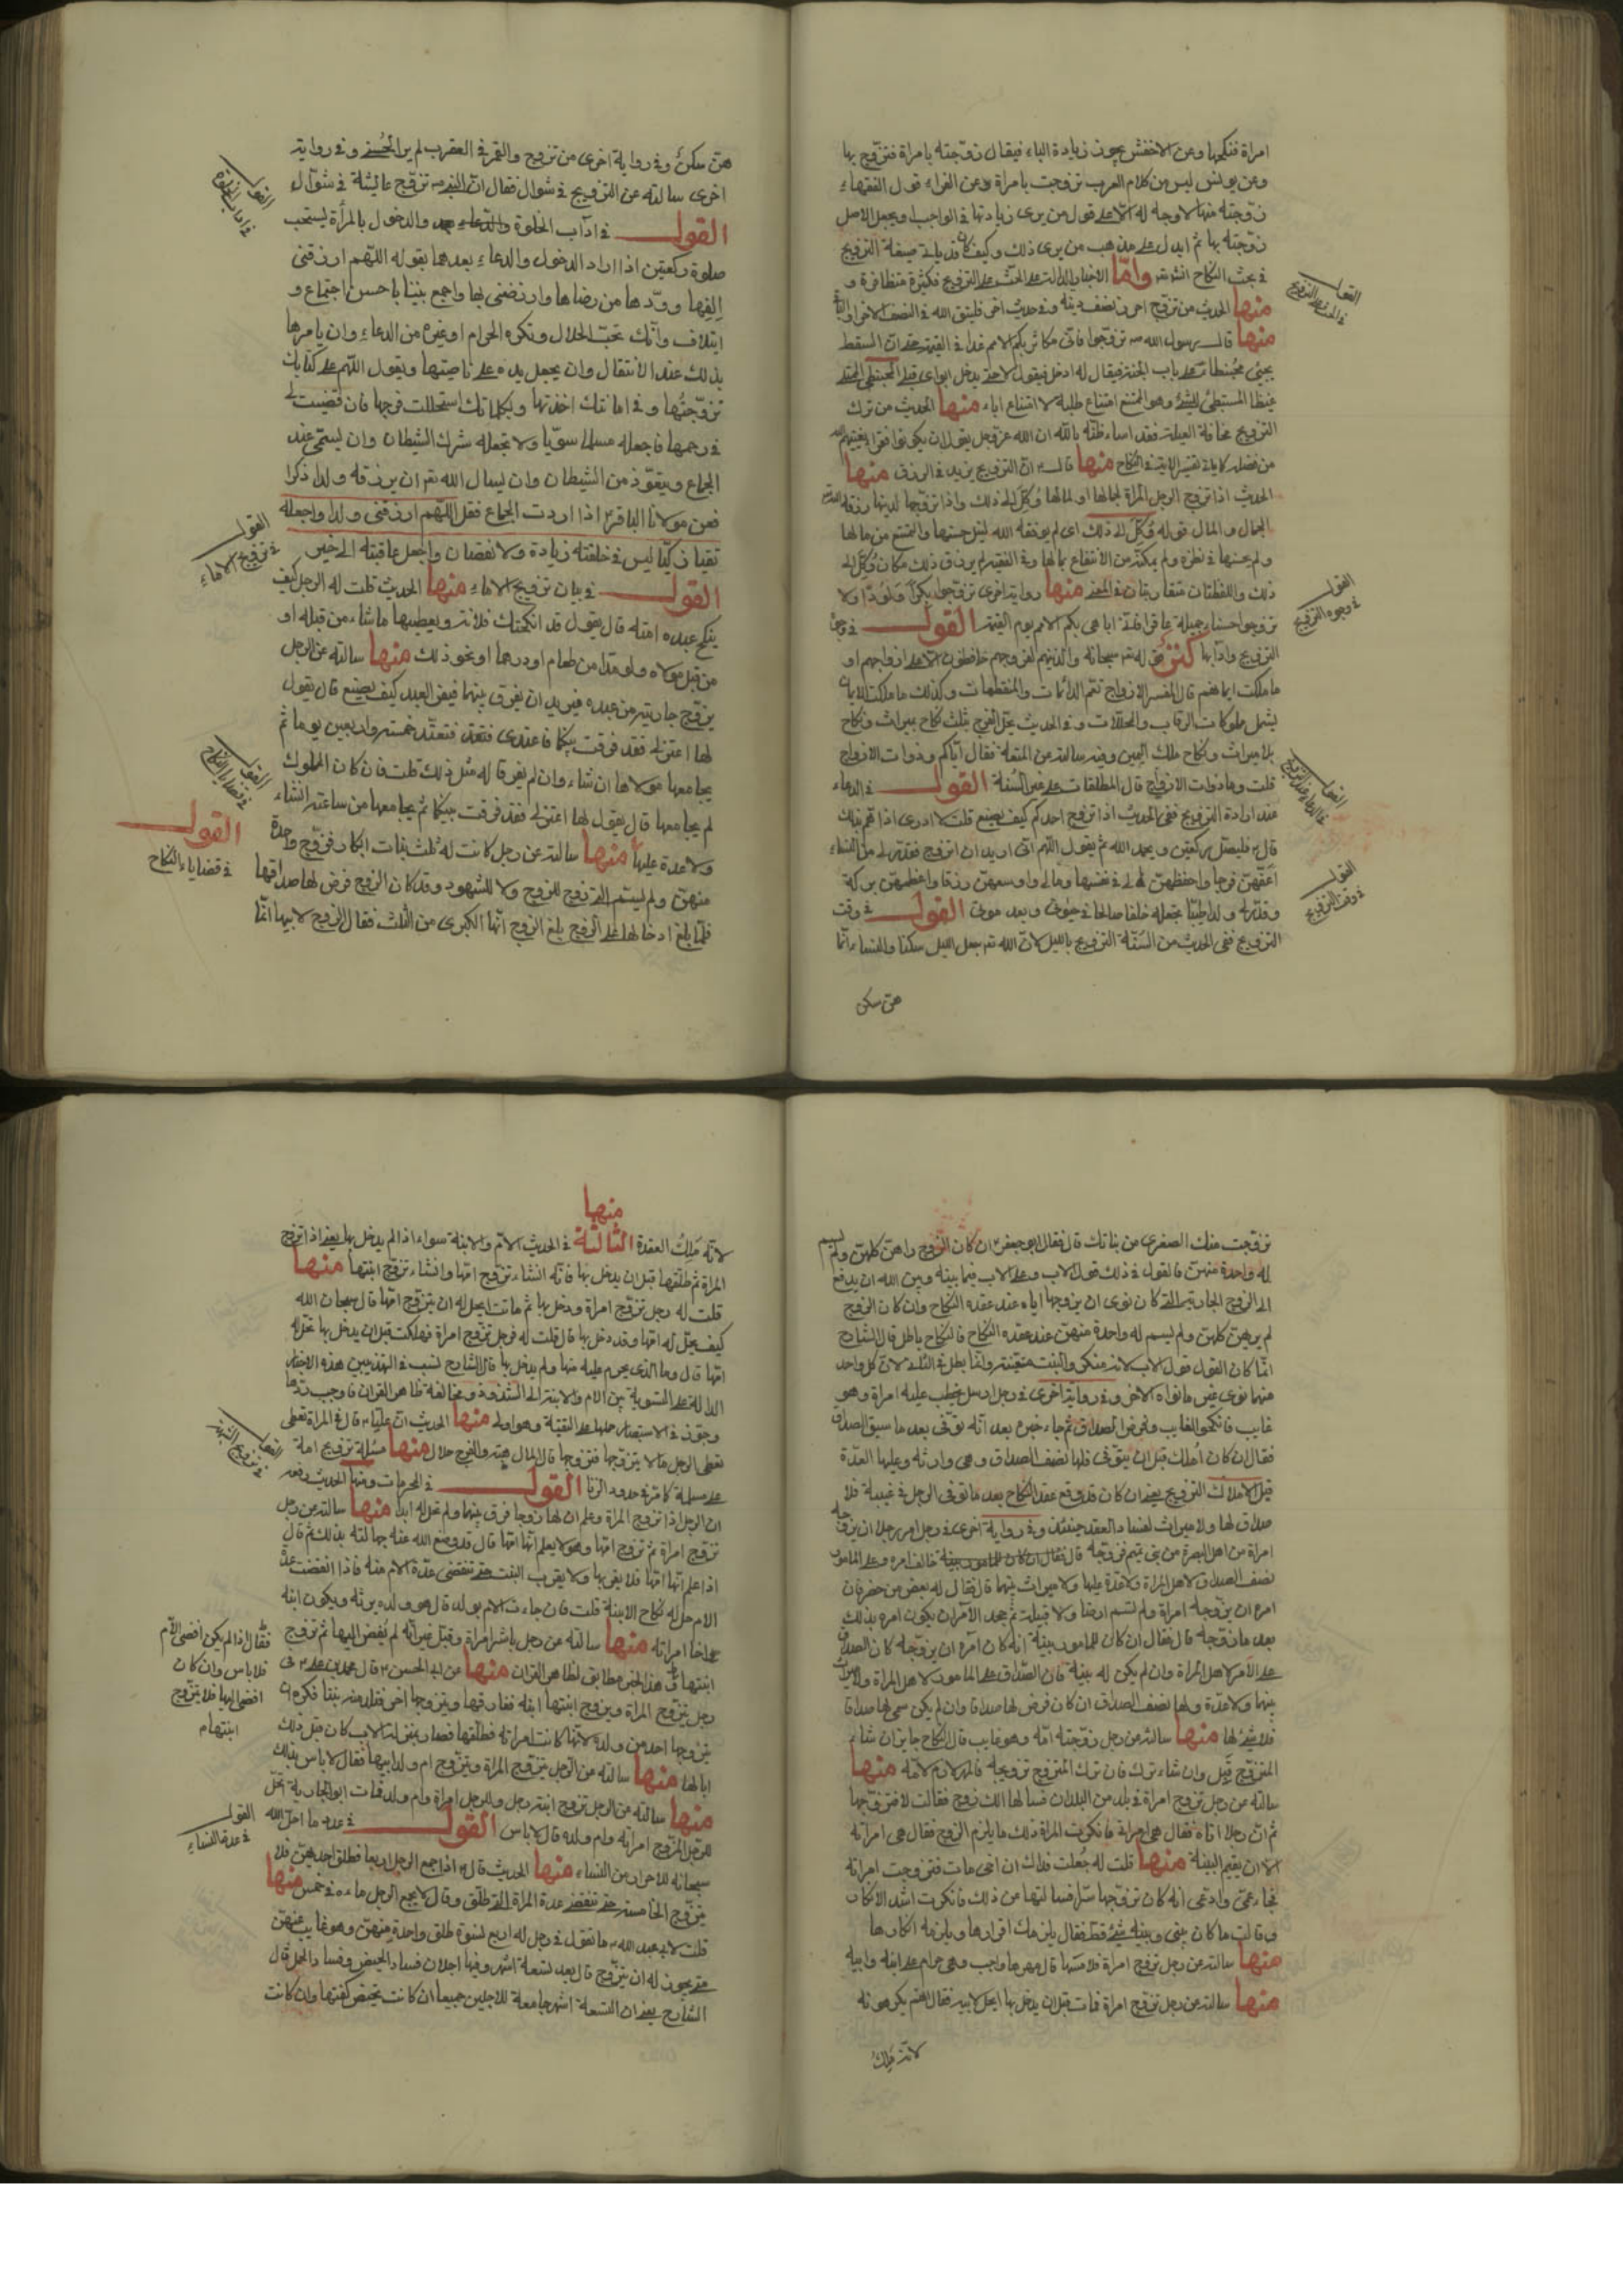 امراة فنكحها وعن الاخفش يجوز زيادة الباء فيقال زوجته بامراة فتزوج بها
وعن يونس ليس من كلام العرب تزوجت بامراة وعن الفراء قول الفقهاء
زوجته منها لا وجه له الا على قول من يرى زيادتها في الواجب او يجعل الاصل
زوجته بها ثم ابدل على مذهب من يرى ذلك وكيف كان قد ياتي صيغة التزويج
في بحث النكاح انشاء الله واما الاخبار الدالة على الحث على التزويج فكثيرة متظافرة و
منها الحديث من تزوج احرز نصف دينه وفي حديث اخر فليتق الله في النصف الاخر او الباقي
منها قال رسول الله ص تزوجوا فاني مكاثر بكم الامم غدا في القيمة حتى ان السقط
يجيئ محبنطأ على باب الجنة فيقال له ادخل فيقول لا حتى يدخل ابواي قبلي المحبنطي الممتلئ
غيظا المستبطئ للشئ وهو الممتنع امتناع طلبة لا امتناع اباء منها الحديث من ترك
التزويج مخافة العيلة فقد اساء ظنه بالله ان الله عز وجل يقول ان يكونوا فقراء يغنهم الله
من فضله كما ياتي تفسير الاية في النكاح منها قال ان التزويج يزيد في الرزق منها
الحديث اذا تزوج الرجل المراة لجمالها او لمالها وكل الى ذلك واذا تزوجها لدينها رزقه الله
الجمال والمال قوله وكل الى ذلك اي لم يوفقه الله لنيل حسنها والتمتع من مالها
ولم يحسنها في نظره ولم يمكنه من الانتفاع بمالها وفي الفقيه لم يرزق ذلك مكان وكل الى
ذلك واللفظتان متقاربتان في المعنى منها رواية اخرى تزوجوا بكرا ولودا ولا
تزوجوا حسناء جميلة عاقرا فاني اباهي بكم الامم يوم القيمة القول في وجوه
التزويج وادابها كنز قوله سبحانه والذينهم لفروجهم حافظون الا على ازواجهم او
ما ملكت ايمانهم قال المفسر الازواج تعم الدائمات والمنقطعات وكذلك ما ملكت الايمان
يشمل مملوكات الرقاب والمحللات وفي الحديث يحل الفرج بثلث نكاح بميراث ونكاح
بلا ميراث ونكاح ملك اليمين وفيه سالته من المتعة فقال اياكم وذوات الازواج
قلت وما ذوات الازواج قال المطلقات على غير السنة القول في الدعاء
عند ارادة التزويج ففي الحديث اذا تزوج احدكم كيف يصنع قلت لا ادري اذا هم بذلك
قال فليصل ركعتين ويحمد الله ثم يقول اللهم اني اريد ان اتزوج فقدر لي من النساء
اعفهن فرجا واحفظهن لي في نفسها ومالي واوسعهن رزقا واعظمهن بركة
وقدر لي ولدا طيبا تجعله خلفا صالحا في حيوتي وبعد موتي القول في وقت
التزويج ففي الحديث من السنة التزويج بالليل لان الله تعالى جعل الليل سكنا والنساء انما
هن سكن
القول
في الحث على التزويج
القول
في وجوه التزويج
القول
في الدعاء عند التزويج
القول
في وقت التزويج
هن سكن وفي رواية اخرى من تزوج والقمر في العقرب لم ير الحسنى وفي رواية
اخرى سالته عن التزويج في شوال فقال ان النبي ص تزوج عائشة في شوال
القول في اداب الخلوة والدعاء والدخول بالمراة يستحب
صلوة ركعتين اذا اراد الدخول والدعاء بعدهما بقوله اللهم ارزقني
الفها وودها من رضاها وارضني بها واجمع بيننا باحسن اجتماع و
ايتلاف وانك تحب الحلال وتكره الحرام او غيره من الدعاء وان يامرها
بذلك عند الانتقال وان يجعل يده على ناصيتها ويقول اللهم على كتابك
تزوجتها وفي امانتك اخذتها وبكلماتك استحللت فرجها فان قضيت لي
في رحمها فاجعله مسلما سويا ولا تجعله شرك الشيطان وان يسمي عند
الجماع ويتعوذ من الشيطان وان ليسال الله تعالى ان يرزقه ولدا ذكرا
فعن مولانا الباقر ع اذا اردت الجماع فقل اللهم ارزقني ولدا واجعله
تقيا زكيا ليس في خلقته زيادة ولا نقصان واجعل عاقبته الى خير
القول في بيان تزويج الاماء منها الحديث قلت له الرجل كيف
ينكح عبده امته قال يقول قد انكحتك فلانة ويعطيها ما شاء من قبله او
من قبل مولاه ولو مدا من طعام او درهما او نحو ذلك منها سالته عن الرجل
يزوج جاريته من عبده فيريد ان يفرق بينهما فيفر العبد كيف يصنع قال يقول
لها اعتزلي فقد فرقت بينكما فاعتدي فتعتد خمسة واربعين يوما ثم
يجامعها مولاها ان شاء وان لم يفر قال له مثل ذلك قلت فان كان المملوك
لم يجامعها قال يقول لها اعتزلي فقد فرقت بينكما ثم يجامعها من ساعته انشاء
ولا عدة عليها منها سالته عن رجل كانت له ثلث بنات ابكار فزوج واحدة
منهن ولم يسم التي زوج للزوج ولا للشهود وقد كان الزوج فرض لها صداقها
فلما بلغ ادخالها على الزوج بلغ الزوج انها الكبرى من الثلث فقال الزوج لابيها انما
القول
في اداب الخلوة
القول
في تزويج الاماء
القول
في قضايا النكاح
القول
في قضاياء النكاح
تزوجت منك الصغرى من بناتك قال فقال ابو جعفر ع ان كان الزوج راهن كلهن ولم يسم
له واحدة منهن فالقول في ذلك قول الاب وعلى الاب فيما بينه وبين الله ان يدفع
الى الزوج الجارية التي كان نوى ان يزوجها اياه عند عقده النكاح وان كان الزوج
لم يرهن كلهن ولم يسم له واحدة منهن عند عقده النكاح فالنكاح باطل قال الشارح
انما كان القول قول الاب لانه منكر والبنت متعينة وانما بطل في الثلث لان كل واحد
منهما نوى غير ما نواه الاخر وفي رواية اخرى في رجل ارسل يخطب عليه امراة وهو
غايب فانكحوا الغايب وفرض الصداق ثم جاء خبره بعد انه توفي بعد ما سيق الصداق
فقال ان كان املك قبل ان يتوفى فلها نصف الصداق وهي وارثه وعليها العدة
قيل الاملاك التزويج يعني ان كان قد وقع عقد النكاح بعد ما توفي الرجل في غيبة فلا
صداق لها ولا ميراث لفساد العقد حينئذ وفي رواية اخرى في رجل امر رجلا ان يزوجه
امراة من اهل البصرة من بني تميم فزوجه قال فقال ان كان للمامور بينة خالف امره وعلى المامور
نصف الصداق لاهل المراة ولا عدة عليها ولا ميراث بينهما قال فقال له بعض من حضر فان
امره ان يزوجه امراة ولم يسم ارضا ولا قبيلة ثم جحد الآمر ان يكون امره بذلك
بعد ما زوجه قال فقال ان كان للمامور بينة انه كان آمره ان يزوجه كان الصداق
على الآمر لاهل المراة وان لم يكن له بينة فان الصداق على المامور لاهل المراة ولا ميراث
بينهما ولا عدة ولها نصف الصداق ان كان فرض لها صداقا وان لم يكن سمى لها صداقا
فلا شئ لها منها سالته من رجل زوجته امه وهو غايب قال النكاح جايز ان شاء
المتزوج قبل وان شاء ترك فان ترك المتزوج تزويجه فالمهر لازم لامه منها
سالته عن رجل تزوج امراة في بلد من البلدان فسالها الك زوج فقالت لا فتزوجها
ثم ان رجلا اتاه فقال هي امراتي فانكرت المراة ذلك ما يلزم الزوج فقال هي امراته
الا ان يقيم البينة منها قلت له جعلت فداك ان اخي مات فتزوجت امراته
فجاء عمي وادعى انه كان تزوجها سرا فسالتها عن ذلك فانكرت اشد الانكار
وقالت ما كان بيني وبينه شئ قط فقال يلزمك اقرارها ويلزمه انكارها
منها سالته عن رجل تزوج امراة فلامسها قال مهرها واجب وهي حرام على ابنه وابيه
منها سالته عن رجل تزوج امراة فمات قبل ان يدخل بها ايحل لابيه فقال انهم يكرهونه
لانه ملك
منها
لانه ملك العقدة الثالثة في الحديث الام والابنة سواء اذا لم يدخل بها يعني اذا تزوج
المراة ثم طلقها قبل ان يدخل بها فانه انشاء تزوج امها وانشاء تزوج ابنتها منها
قلت له رجل تزوج امراة ودخل بها ثم ماتت ايحل له ان يتزوج امها قال سبحان الله
كيف يحل له امها وقد دخل بها قال قلت له فرجل تزوج امراة فهلكت قبل ان يدخل بها تحل له
امها قال وما الذي يحرم عليه منها ولم يدخل بها قال الشارح نسب في التهذيبين هذه الاخبار
الدالة على التسوية بين الام والابنة الى الشذوذ ومخالفة ظاهر القران فاوجب ردها
وجوز في الاستبصار حملها على التقية وهو اولى منها الحديث ان عليا ع قال في المراة تعطى
تعطي الرجل مالا يتزوجها فتزوجها قال المال هبة والفرج حلال منها مسئلة تزويج امة
على مسلمة كما مر في حدود الزنا القول في المحرمات ومنها الحديث رفعه
ان الرجل اذا تزوج المراة وعلم ان لها زوجا فرق بينهما ولم تحل له ابدا منها سالته عن رجل
تزوج امراة ثم تزوج امها وهو لا يعلم انها امها قال قد وضع الله عنه جهالته بذلك ثم قال
اذا علم انها امها فلا يقربها ولا يقرب البنت حتى تنقضي عدة الام منه فاذا انقضت عدة
الام حل له نكاح الابنة قلت فان جاءت الام بولد قال هو ولده يرثه ويكون ابنه
واخا امراته منها سالته عن رجل باشر امراة وقبل غير انه لم يفض اليها ثم تزوج
ابنتها هذا الخبر مطابق لظاهر القران منها عن ابي الحسن ع قال محمد بن علي ع في
رجل يتزوج المراة ويزوج ابنتها ابنه ففارقها ويتزوجها اخر فتلد منه بنتا فكره ان
يتزوجها احد من ولده لانها كانت امراته فطلقها فصار بمنزلة الاب كان قبل ذلك
ابا لها منها سالته من الرجل يتزوج المراة ويتزوج ام ولد ابيها فقال لا باس بذلك
منها سالته عن الرجل تزوج ابنة رجل وللرجل امراة وام ولد فمات ابو الجارية تحل
للرجل المزوج امراته وام ولده قال لا باس القول في عدد ما احل الله
سبحانه للاحرار من النساء منها الحديث قال اذا جمع الرجل اربعا فطلق احديهن فلا
يتزوج الخامسة حتى تنقضي عدة المراة التي طلق وقال لا يجمع الرجل ماءه في خمس منها
قلت لابي عبد الله ع ما تقول في رجل له اربع نسوة طلق واحدة منهن وهو غايب عنهن
متى يجوز له ان يتزوج قال بعد تسعة اشهر وفيها اجلان فساد الحيض وفساد الحمل قال
الشارح يعني ان التسعة اشهر جامعة للاجلين جميعا ان كانت تحيض كفتها وان كانت
القول
في تزويج
فقال اذا لم يكن افضى الى الام
فلا باس وان كان
افضى اليها فلا يتزوج
ابنتها م
القول
في عدة النساء